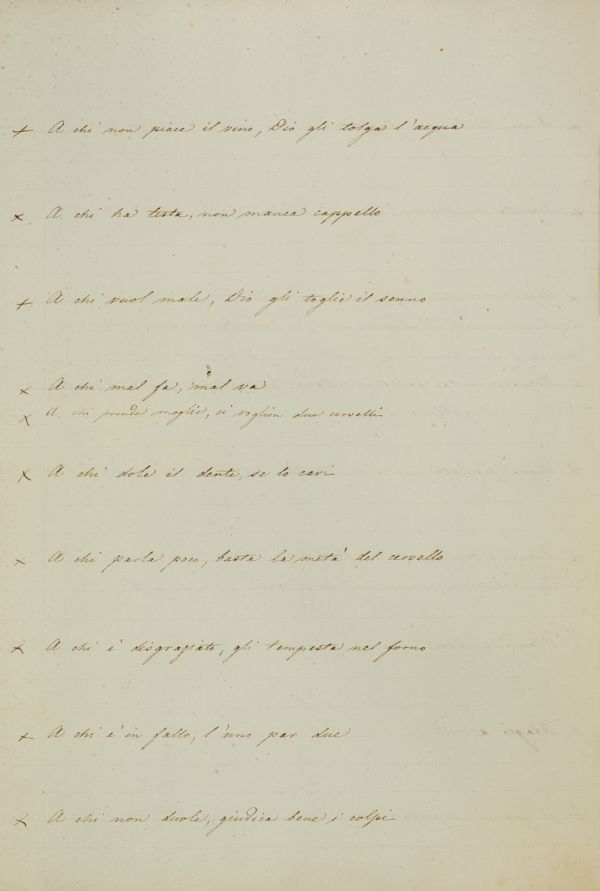 x A chi non piace il vino, Dio gli tolga l'acqua
x A chi ha testa, non manca cappello
x A chi vuol male, Dio gli toglie il senno
x A chi mal fa, mal va
x A chi prende moglie, ci voglion due cervelli
x A chi dole il dente, se lo cavi
x A chi parla poco, basta la metà del cervello
x A chi è disgraziato, gli tempesta nel forno
x A chi è in fallo, l'uno par due
x A chi non duole, giudica bene i colpi